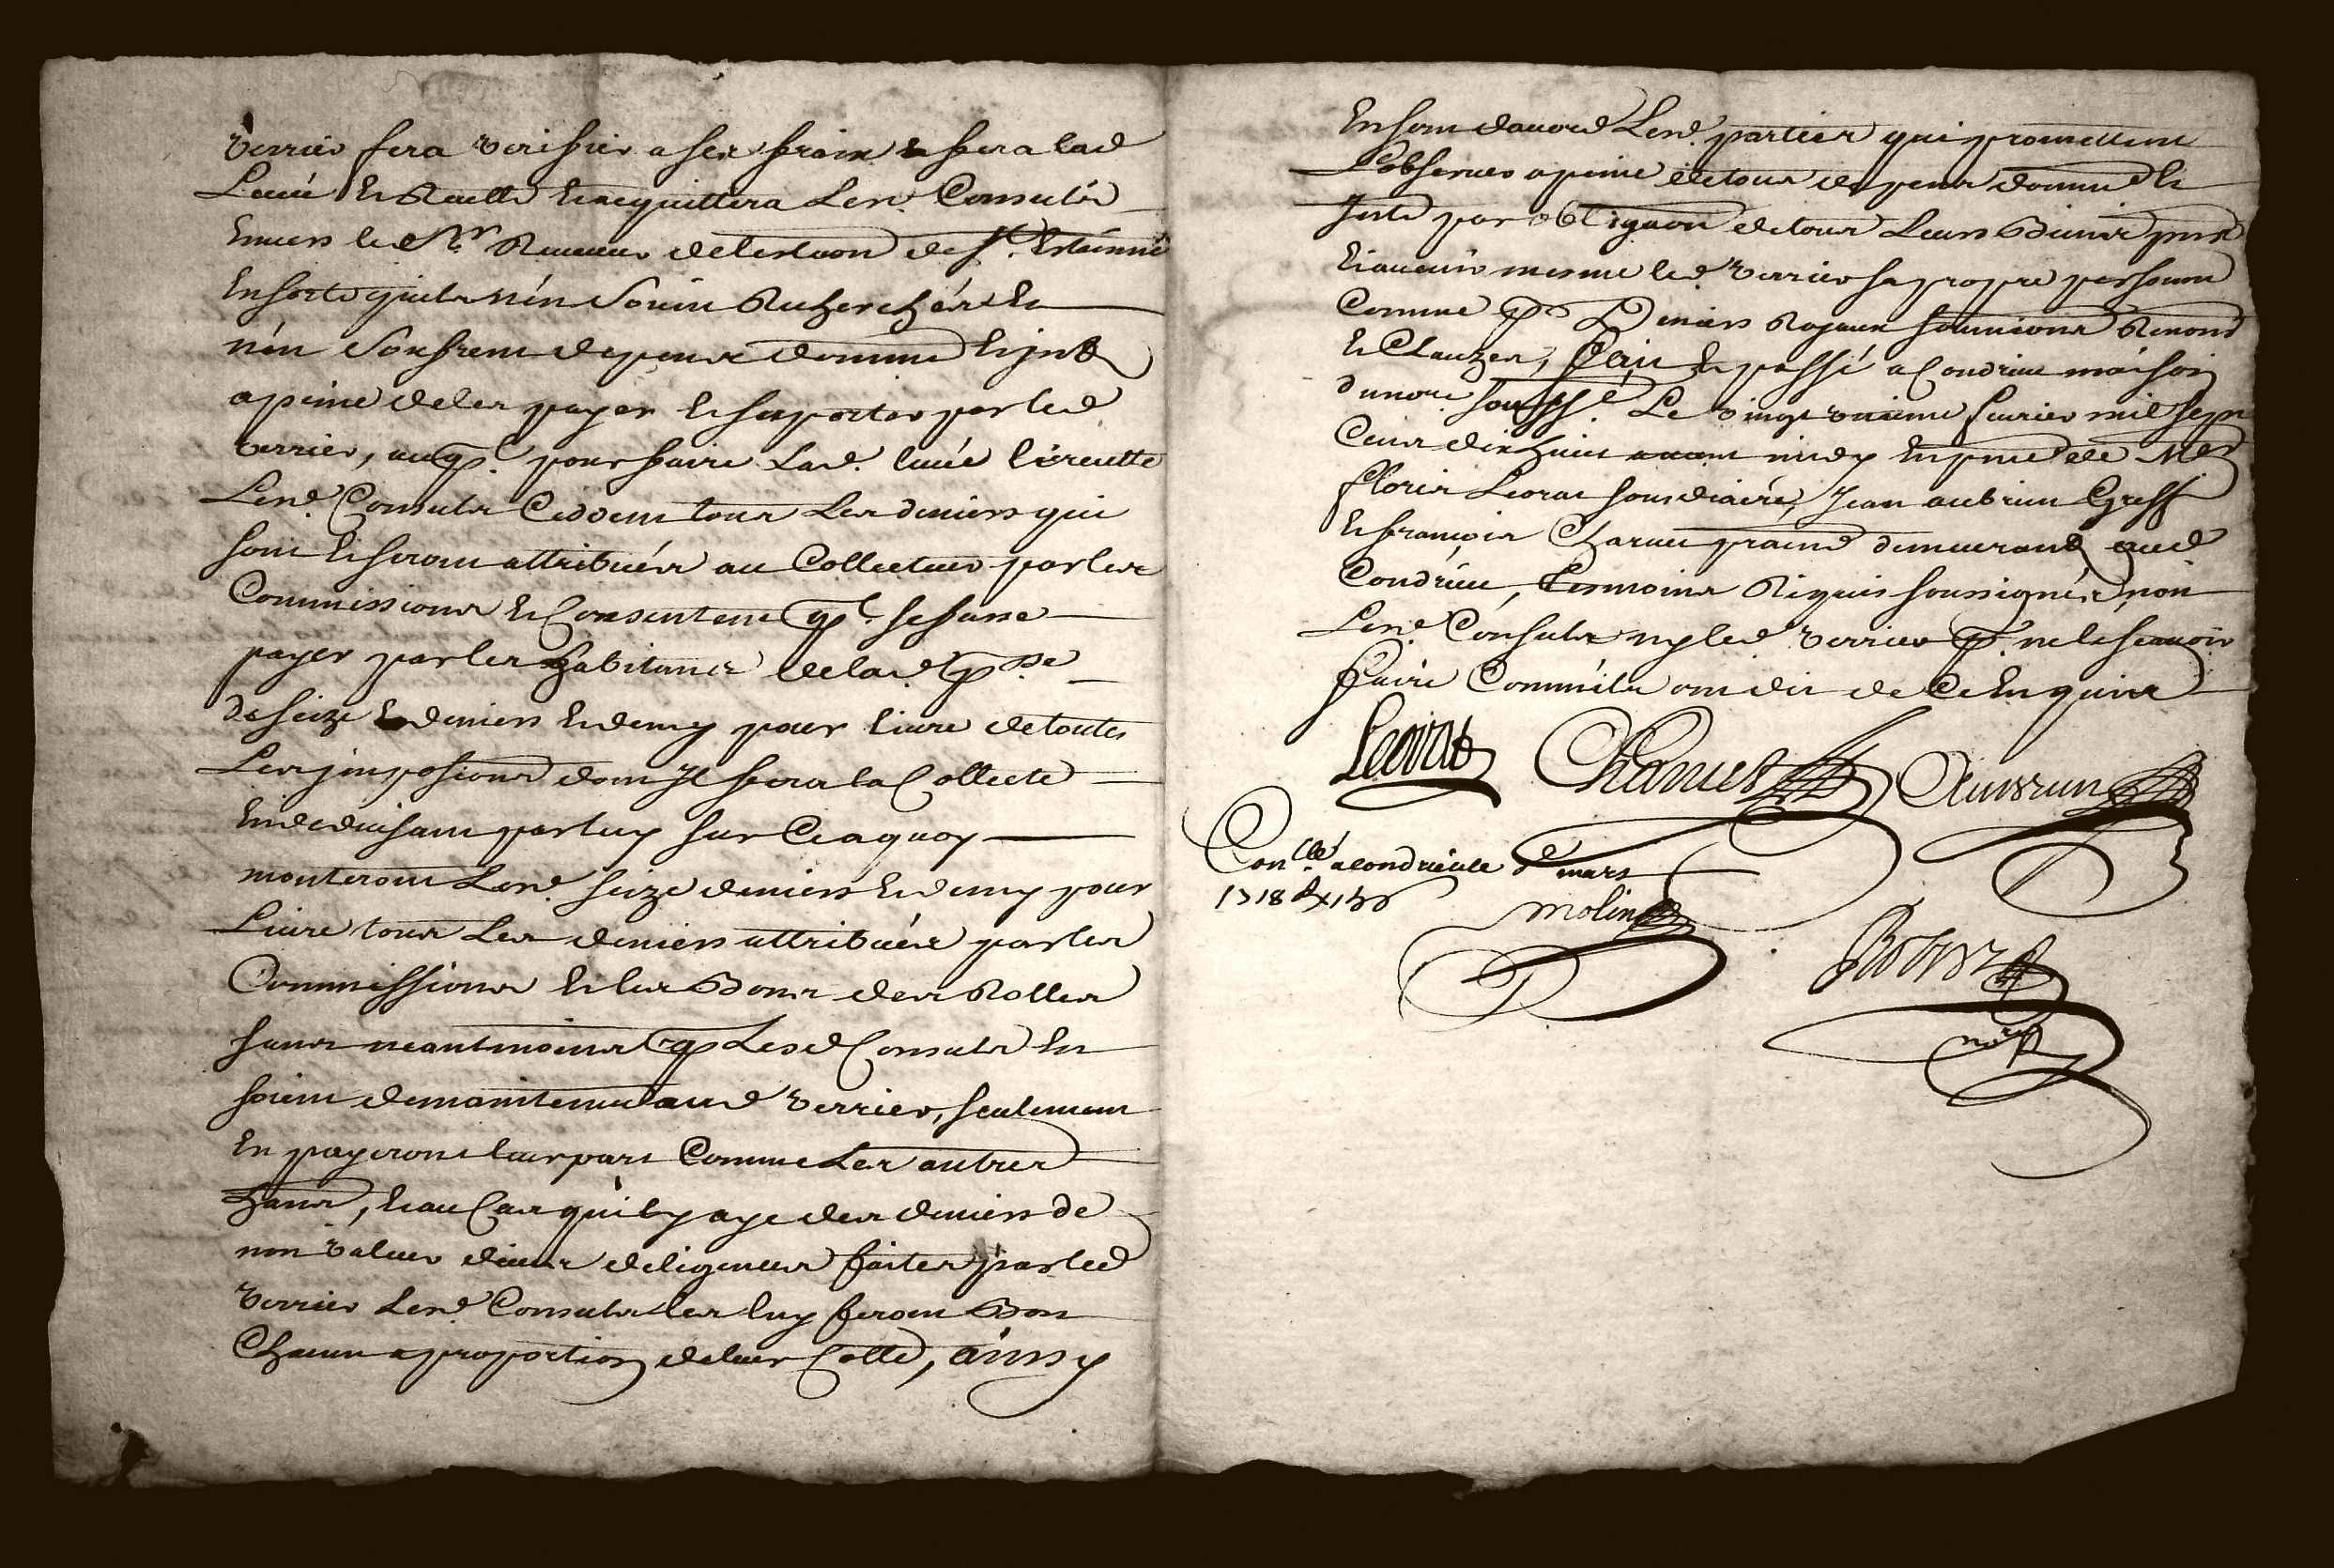 verrier fera veriffier a ses fraix & fera lad
Leuée & Recette & acquittera Lesd. Consuls
Enuers led Sr Receueur delelection de St. Estienne
Ensorte quils nén soient Recherchés &
nén souffrent depens domm &
apeine deles payer & suporter par led
verrier, auql. pour faire Lad. leuée & recette
Lesd. Consuls Cedent tous Les deniers qui
sont & seront attribués au Collecteur par les
Commissions & Consentent ql. se fasse
payer par les habitants delad. psse
de seize deniers & demy pour liure detoutes
Les impositions dont Il fera la Collecte
En deduisant par luy sur Ce aquoy
monteront Lesd. seize deniers & demy pour
Liure tous Les deniers attribués par les
Commissions & les Bons des Rolles
sans neantmoins q Lesd Consuls En
soient de maintenue aud verrier, seulement
En payeront leur part Comme Les autres
hans, & au Cas quil y aye des deniers de
non valeur deues deligences faites par led
verrier Lesd. Consuls les luy feront Bon
Chacun a proportion deleur Cotte, ainsy
En sont daccord Lesd. parties qui promettent
L'obseruer apeine detous depens domm &
Inte par obligaon detous Leurs Biens pnts
& aduenir mesme led. verrier sa propre personne
Comme p. Deniers Royaux soumissions Renons
& Clauzes, fait & passé a Condrieu maison
du nore. soussé. Le vingt vnieme feurier mil sept
Cents dix huit auant midy En pnce de Mre
floris Leorat sousdiacre, Jean aubrun Greff
& francois Charuet praticn demeurants aud
Condrieu, tesmoins Requis soussignés, non
Lesd. Consuls ny led. verrier p. ne le scauoir
faire Comme ils ont dit de Ce Enquis
Leorat Charuet Auvrun
Conllé a condrieu le 2 mars
1718
molin
nore